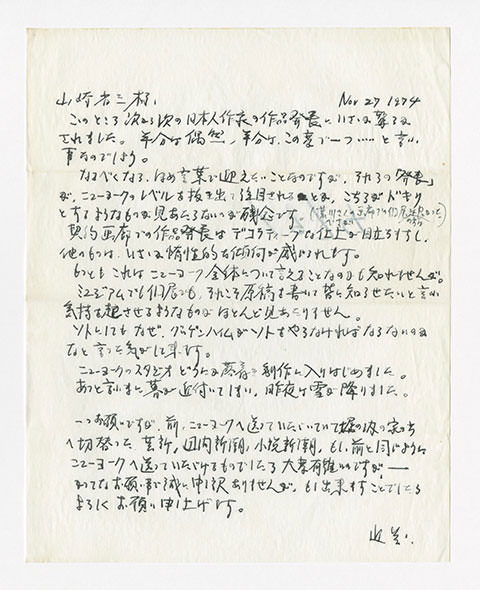 山崎省三様、 Nov 27 1974
このところ次から次の日本人作家の作品発表に、いささか
されました。半分は偶然、半分は、この意で一つ……と言い
なのでしょう。
なるべくなら、ほめ言葉で迎えたいことなのですが、それらの「発表」
が、ニューヨークのレベルを抜き出て注目されることとか、こちらがドキリ
とするようなものが見あたらないのが残念です
契約画廊での作品発表はデコラティーブな仕上が目立ちますし、
他のものは、いささか惰性的な傾向が感ぜられます。
もっともこれはニューヨーク全体について言えることなのかも知れませんが。
ミュージアムでも個展でも、それこそ原稿を書いて皆に知らせたいと言う
気持を起させるようなものがほとんど見あたりません。
ソトにしてもなぜ、グッゲンハイムがソトをやらなければならないのか
なと言った気がして来ます。
ニューヨークのスタジオ どうにか 制作に入りはじめました。
あっと言うまに暮が近付いてしまい、昨夜は雪が降りました。
一つお願いですが、前、ニューヨークへ送っていただいていて
へ切替った、芸新、国内新潮、小説新潮、もし前と同じように
ニューヨークへ送っていただけるものでしたら大変有難いのですが——
かってなお願い事で誠に申訳ありませんが、もし出来ますことでしたら
よろしくお願い申上げます。